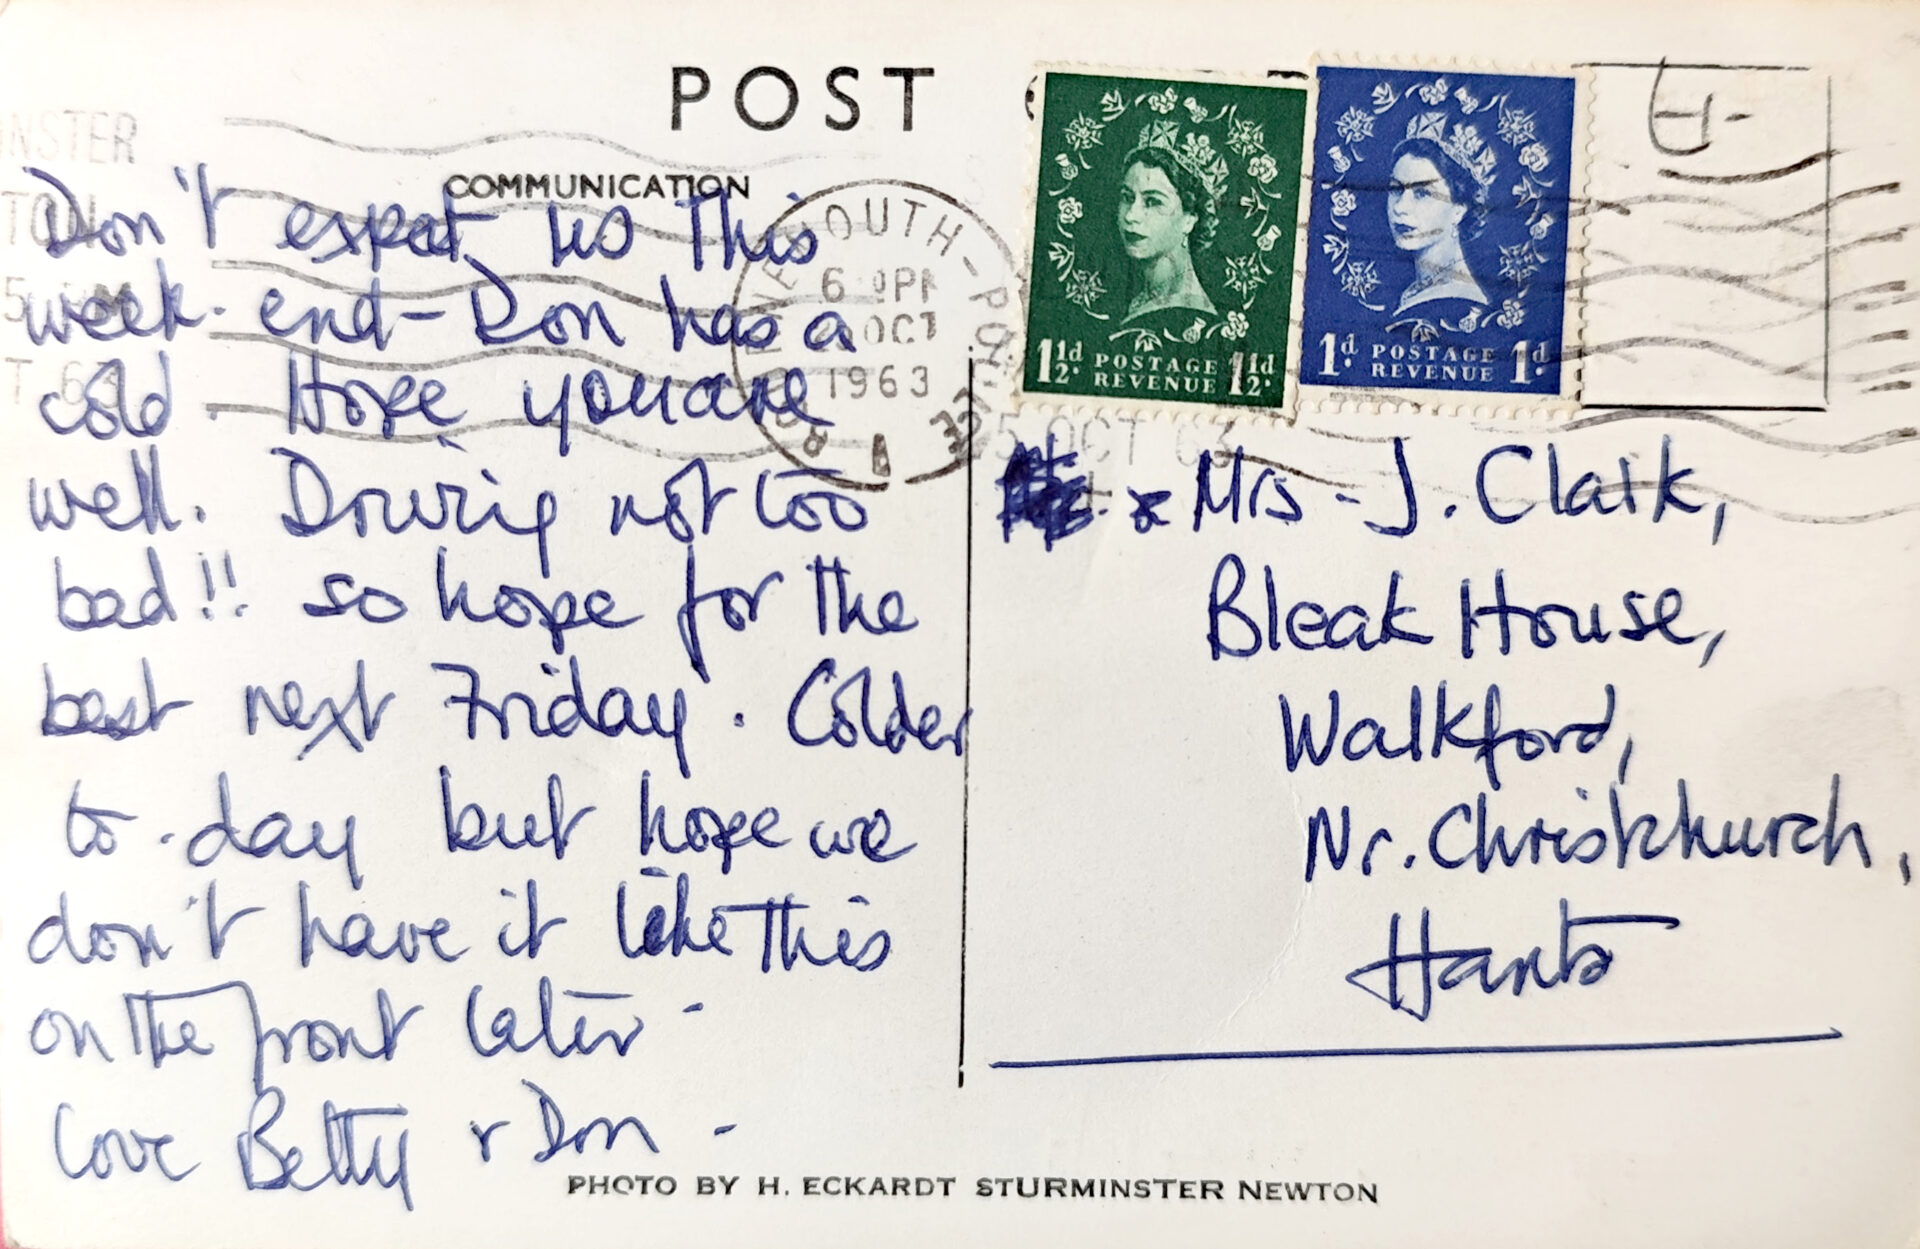 POST
COMMUNICATION
Don't expect us this
week-end - Don has a
cold. Hope you are
well. Driving not too
bad!! so hope for the
best next Friday. Colder
to-day but hope we
don't have it like this
on the front later -
Love Betty & Don -
NSTER
OUTH - PO
6 PM
OCT
1963
1½d POSTAGE REVENUE 1½d
1d POSTAGE REVENUE 1d
5 OCT 63
& Mrs - J. Clark,
Bleak House,
Walkford,
Nr. Christchurch,
Hants
PHOTO BY H. ECKARDT STURMINSTER NEWTON